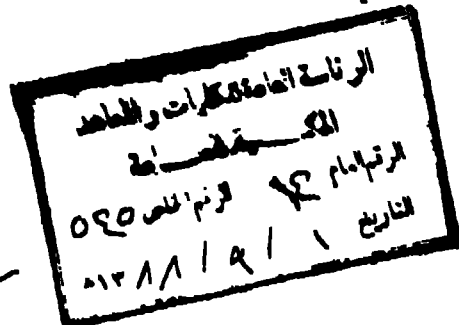 الرئاسة العامة للكليات والمعاهد
المكتبة العامة
الرقم العام ٩٤ الرقم الخاص ٥٤٥
التاريخ ١ / ٩ / ١٣٨٨ھ